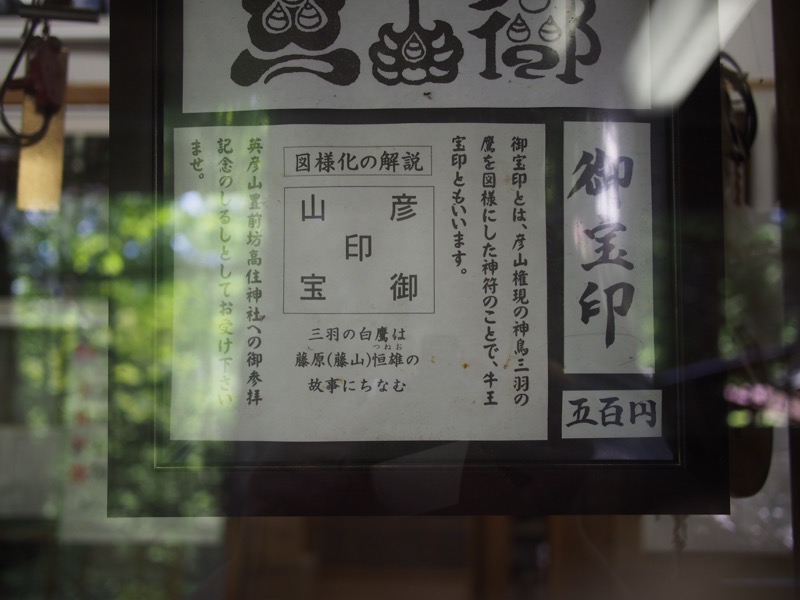 御宝印
五百円
御宝印とは、彦山権現の神鳥三羽の
鷹を図様にした神符のことで、牛王
宝印ともいいます。
図様化の解説
山 彦
印
宝 御
三羽の白鷹は
つねお
藤原(藤山)恒雄の
故事にちなむ
英彦山豊前坊高住神社への御参拝
記念のしるしとしてお受け下さい
ませ。